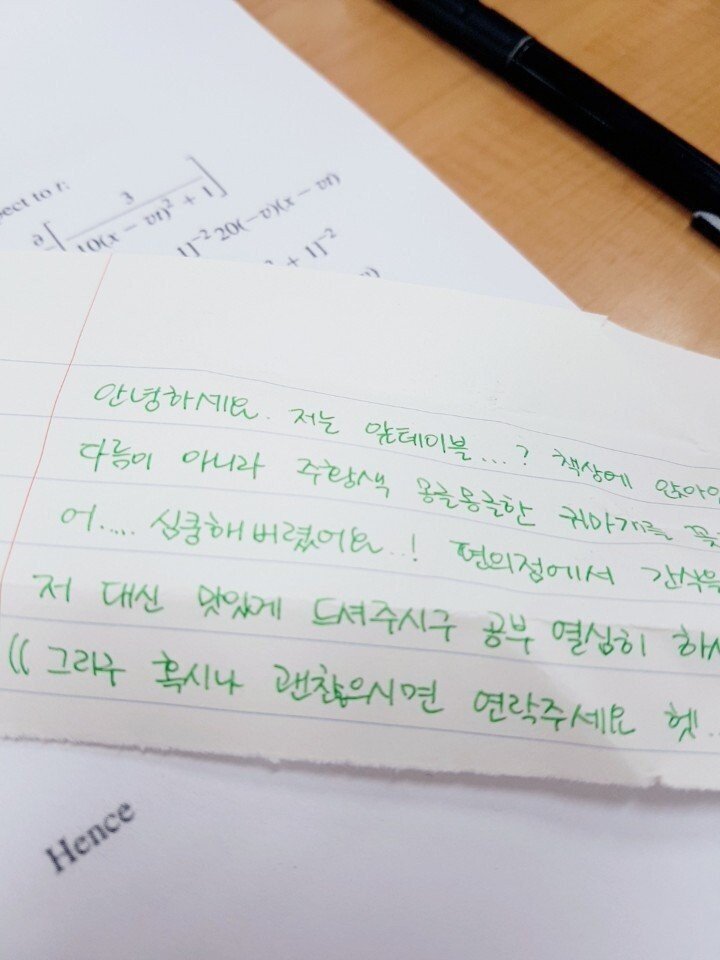 pect to t:
∂ [ 3
10(x − vt)² + 1 ]
1]⁻² 20(−v)(x − vt)
+ 1]⁻²
안녕하세요. 저는 앞테이블...? 책상에 앉아
다름이 아니라 주황색 몽글몽글한 귀마개를
어..... 심쿵해버렸어요..! 편의점에서 간식을
저 대신 맛있게 드셔주시구 공부 열심히 하
(( 그리구 혹시나 괜찮으시면 연락주세요 헷..
Hence